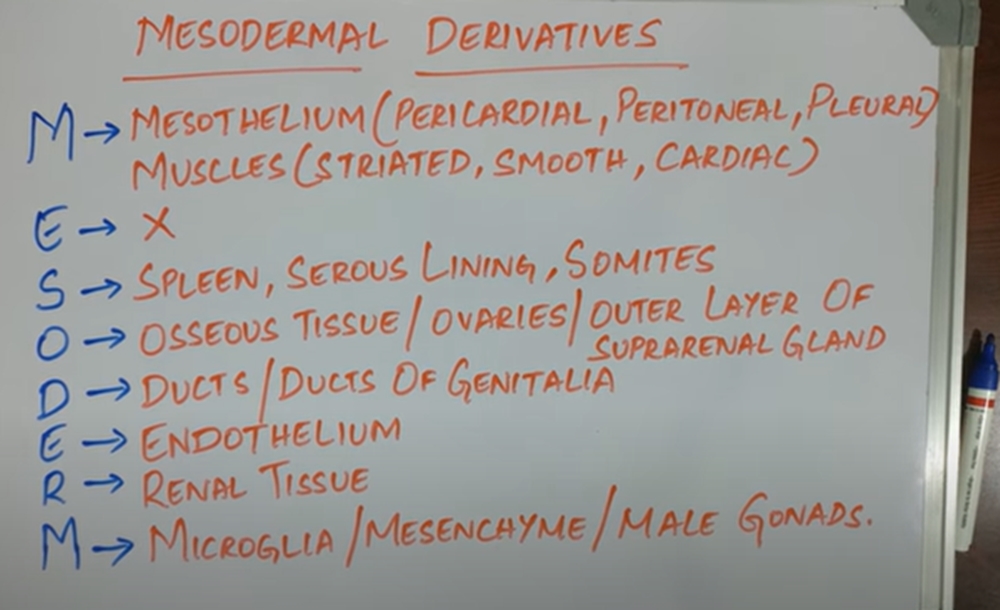 MESODERMAL DERIVATIVES
M → MESOTHELIUM (PERICARDIAL, PERITONEAL, PLEURAL)
MUSCLES (STRIATED, SMOOTH, CARDIAC)
E → X
S → SPLEEN, SEROUS LINING, SOMITES
O → OSSEOUS TISSUE / OVARIES / OUTER LAYER OF
SUPRARENAL GLAND
D → DUCTS / DUCTS OF GENITALIA
E → ENDOTHELIUM
R → RENAL TISSUE
M → MICROGLIA / MESENCHYME / MALE GONADS.